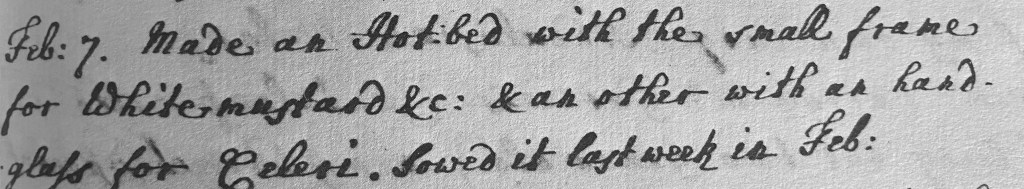 Feb: 7. Made an Hot:bed with the small frame
for White mustard &c: & an other with an hand-
glass for Celeri. Sowed it last week in Feb: